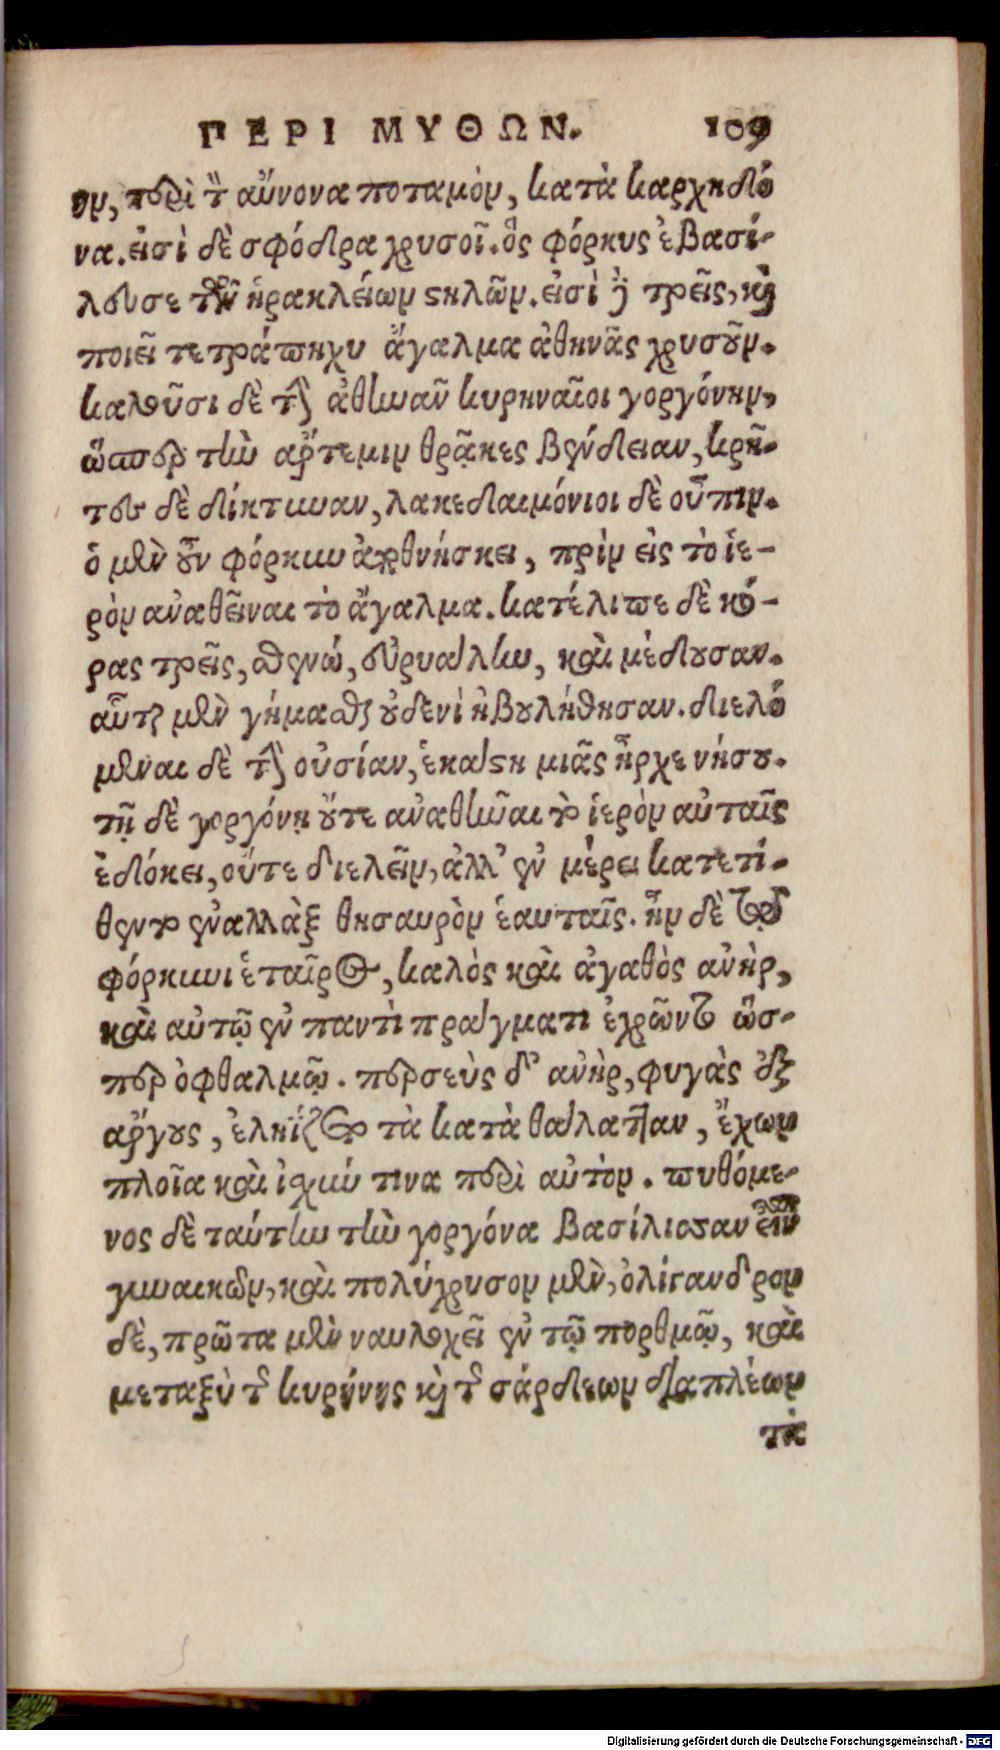 ΠΕΡΙ ΜΥΘΩΝ. 109
ον, περὶ τ̀ αὔνονα ποταμὸν, κατὰ καρχηδό
να. εἰσὶ δὲ σφόδρα χρυσοῖ. ὃς φόρκυς ἐβασί-
λευσε τῶν ἡρακλείων στηλῶν. εἰσὶ δὲ τρεῖς, καὶ
ποιεῖ τετράπηχυ ἄγαλμα ἀθηνᾶς χρυσοῦν.
καλοῦσι δὲ τὴν ἀθηνᾶν κυρηναῖοι γοργόνην,
ὥσπερ τὴν ἄρτεμιν θρᾷκες βενδειαν, κρῆ-
τες δὲ δίκτυναν, λακεδαιμόνιοι δὲ οὖπιν.
ὁ μὲν οὖν φόρκυν ἀποθνήσκει, πρὶν εἰς τὸ ἱε-
ρὸν ἀναθεῖναι τὸ ἄγαλμα. κατέλιπε δὲ κό-
ρας τρεῖς, σθενώ, εὐρυάλην, καὶ μέδουσαν.
αὗται μὲν γήμασθαι οὐδενὶ ἠβουλήθησαν. διελό
μεναι δὲ τὴν οὐσίαν, ἑκάστη μιᾶς ἦρχε νήσου.
τῇ δὲ γοργόνῃ οὔτε ἀναθῆναι τὸ ἱερὸν αὐταῖς
ἐδόκει, οὔτε διελεῖν, ἀλλ' ἐν μέρει κατετί-
θεντο ἐναλλὰξ θησαυρὸν ἑαυταῖς. ἦν δὲ τῷ
φόρκυνι ἑταῖρος, καλὸς καὶ ἀγαθὸς ἀνὴρ,
καὶ αὐτῷ ἐν παντὶ πράγματι ἐχρῶντο ὥσ-
περ ὀφθαλμῷ. περσεὺς δ' ἀνὴρ, φυγὰς ἐξ
ἄργους, ἐληΐζετο τὰ κατὰ θάλατταν, ἔχων
πλοῖα καὶ ἰσχύν τινα περὶ αὐτὸν. πυθόμε-
νος δὲ ταύτην τὴν γοργόνα βασίλισσαν εἶναι
γυναικῶν, καὶ πολύχρυσον μὲν, ὀλίγανδρον
δὲ, πρῶτα μὲν ναυλοχεῖ ἐν τῷ πορθμῷ, καὶ
μεταξὺ τῆς κυρήνης καὶ τῆς σάρδεων διαπλέων
τὰ
Digitalisierung gefördert durch die Deutsche Forschungsgemeinschaft - DFG